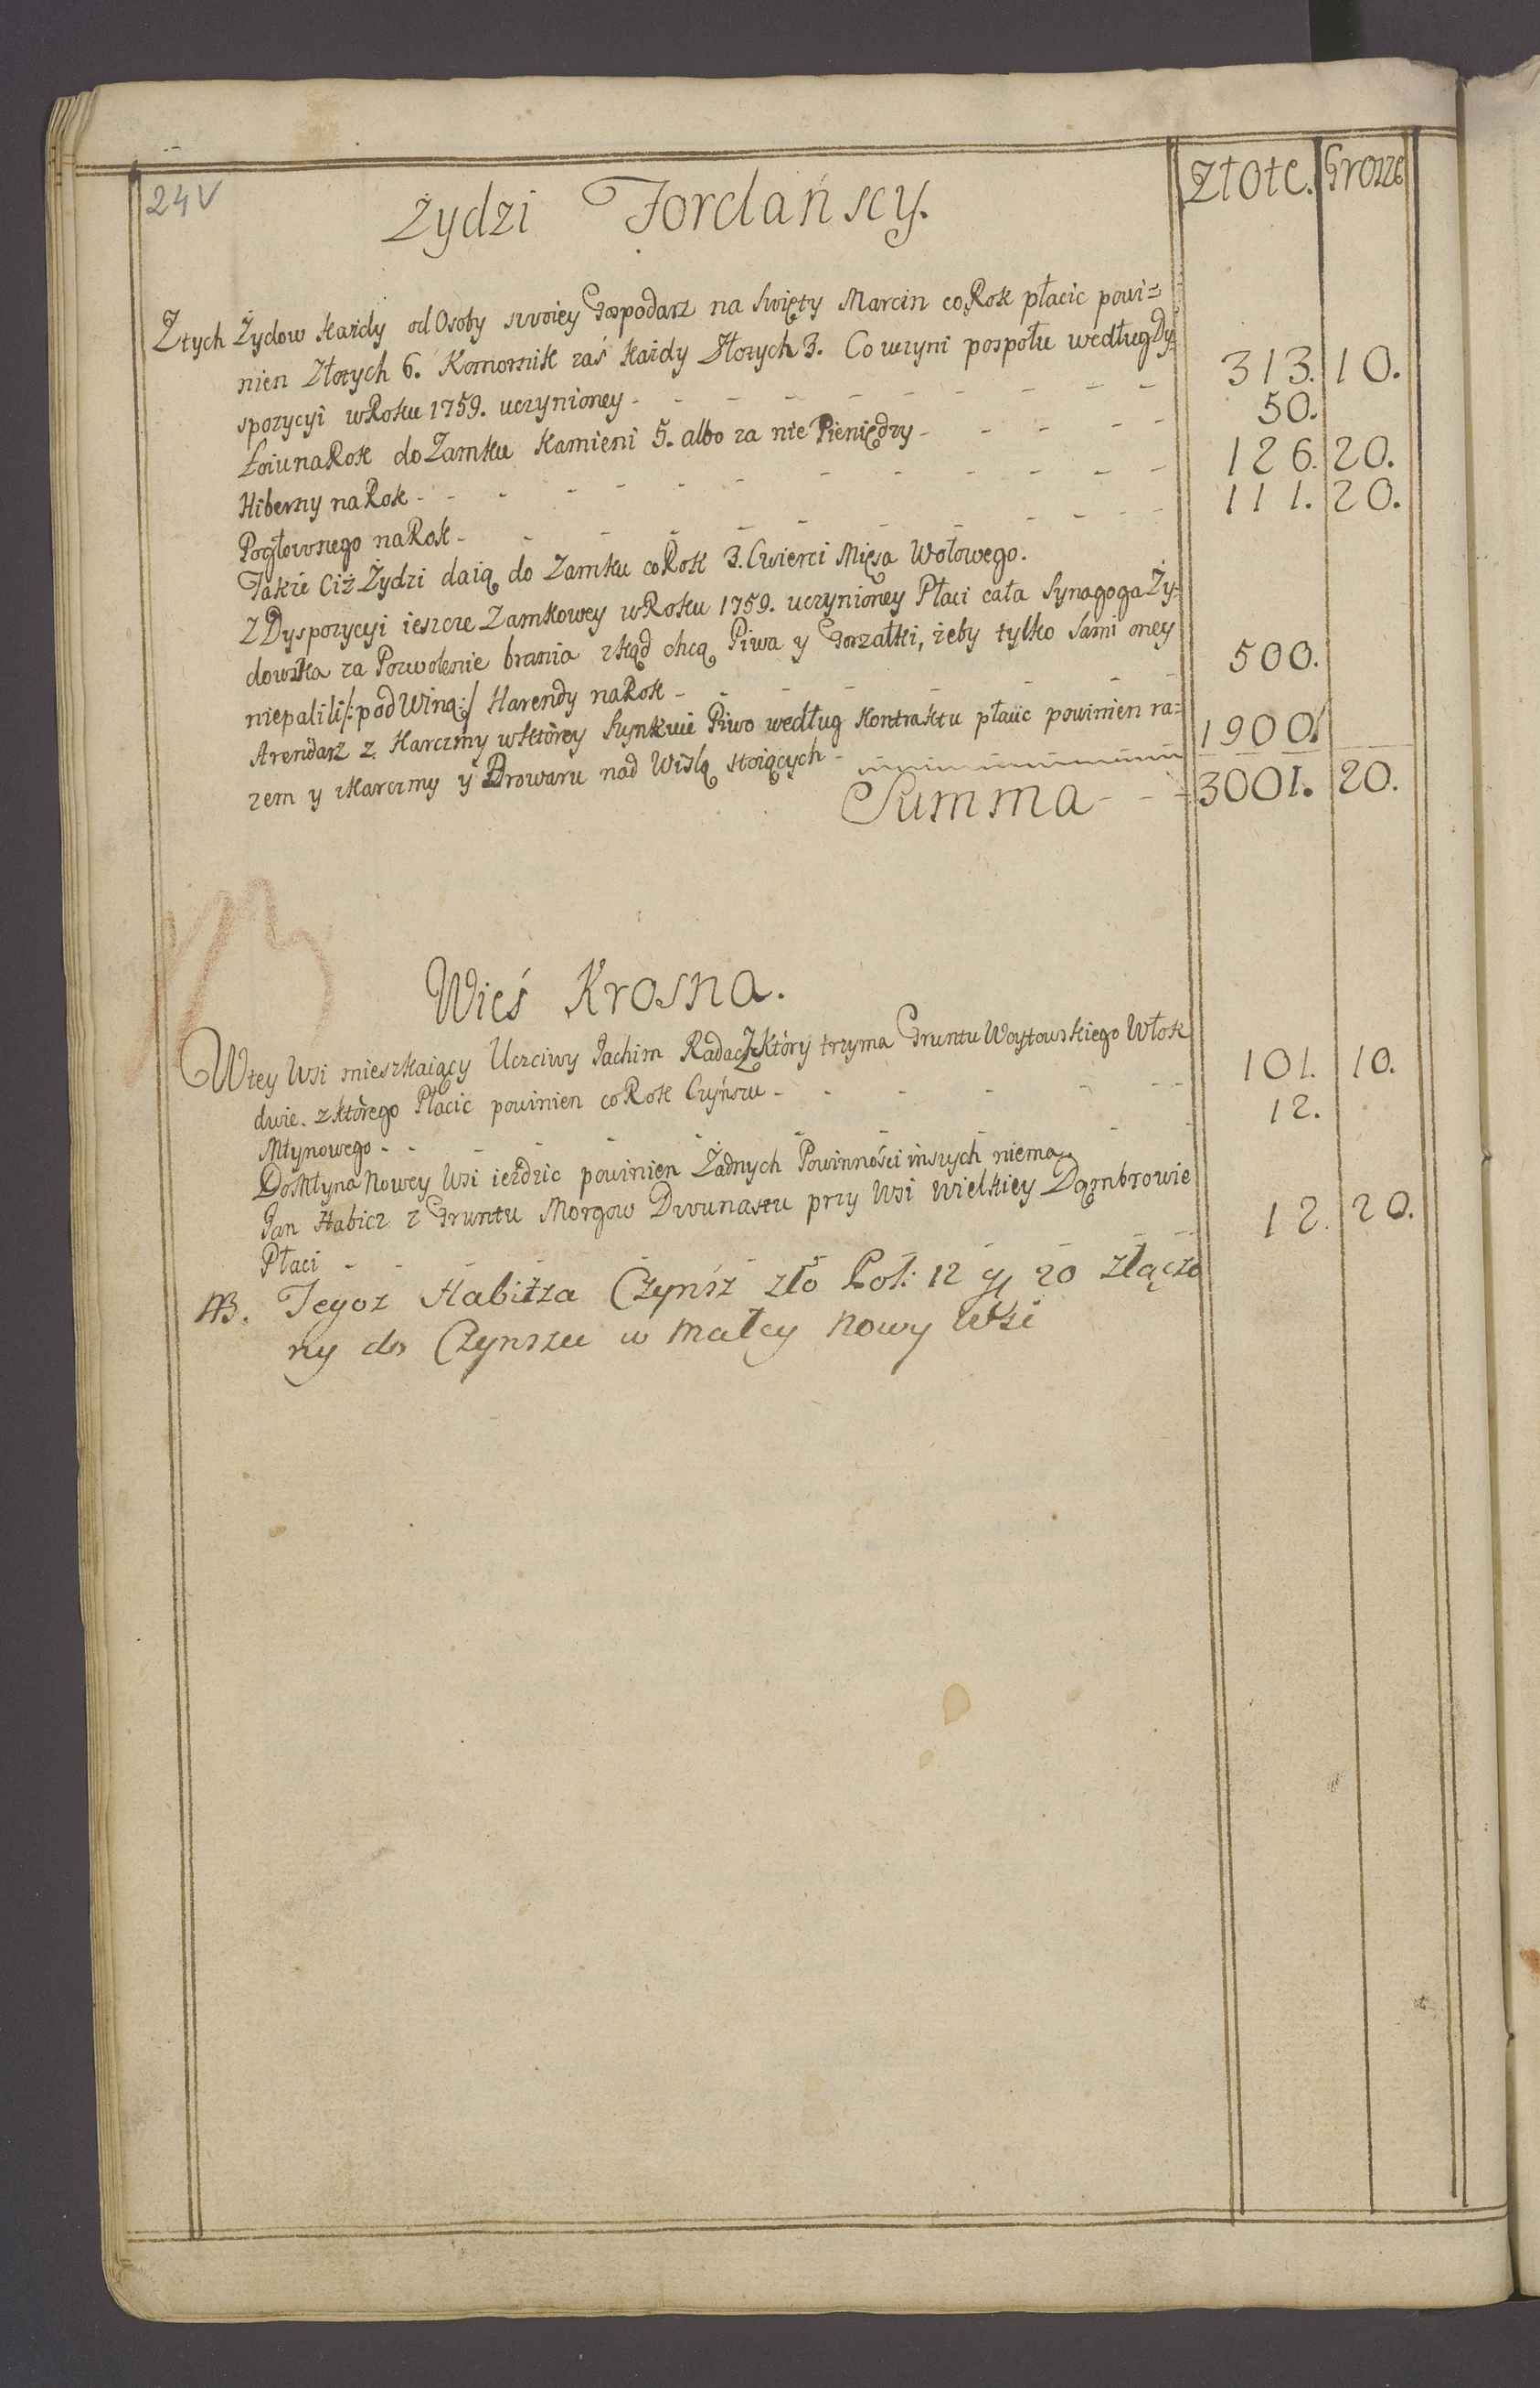 24V
Złote. Grosze
Żydzi Fordańscy.
Z tych Żydow każdy od Osoby swoiey Gospodarz na Swięty Marcin co Rok płacic powi=
nien Złotych 6. Komornik zaś każdy Złotych 3. Co uczyni pospołu według Dy=
spozycyi w Roku 1759. uczynioney - - - - - - - - - 313. 10.
Łoiu na Rok do Zamku Kamieni 5. albo za nie Pieniędzy - - - - - 50.
Hiberny na Rok - - - - - - - - - - - - 126. 20.
Pogłownego na Rok - - - - - - - - - - - - 111. 20.
Także Ciż Żydzi daią do Zamku co Rok 3. Cwierci Mięsa Wołowego.
Z Dyspozycyi ieszcze Zamkowey w Roku 1759. uczynioney Płaci cała Synagoga Ży=
dowska za Pozwolenie brania zkąd chcą Piwa y Gorzałki, żeby tylko sami oney
niepalili /:pod Winą:/ Harendy na Rok - - - - - - - - 500.
Arendarz z Karczmy w ktorey Szynkuie Piwo według Kontraktu płacic powinien ra=
zem y zkarczmy y Browaru nad Wisłą stoiących - 1900.
Summa - - - 3001. 20.
Wieś Krosna.
W tey Wsi mieszkaiący Uczciwy Jachim Radacz który trzyma Gruntu Woytowskiego Włok
dwie. z którego Płacic powinien co Rok Czynszu - - - - - - 101. 10.
Młynowego - - - - - - - - - - - 12.
Do Młyna Nowey Wsi ieździc powinien Żadnych Powinności inszych niema
Jan Habicz z Gruntu Morgow Dwunastu przy Wsi Wielkiey Dąmbrowie
Płaci - - - - - - - - - - - 12. 20.
NB. Tegoz Habitza Czynsz zło Pol: 12 g 20 złączo
ny do Czynszu w Małey Nowy Wsi